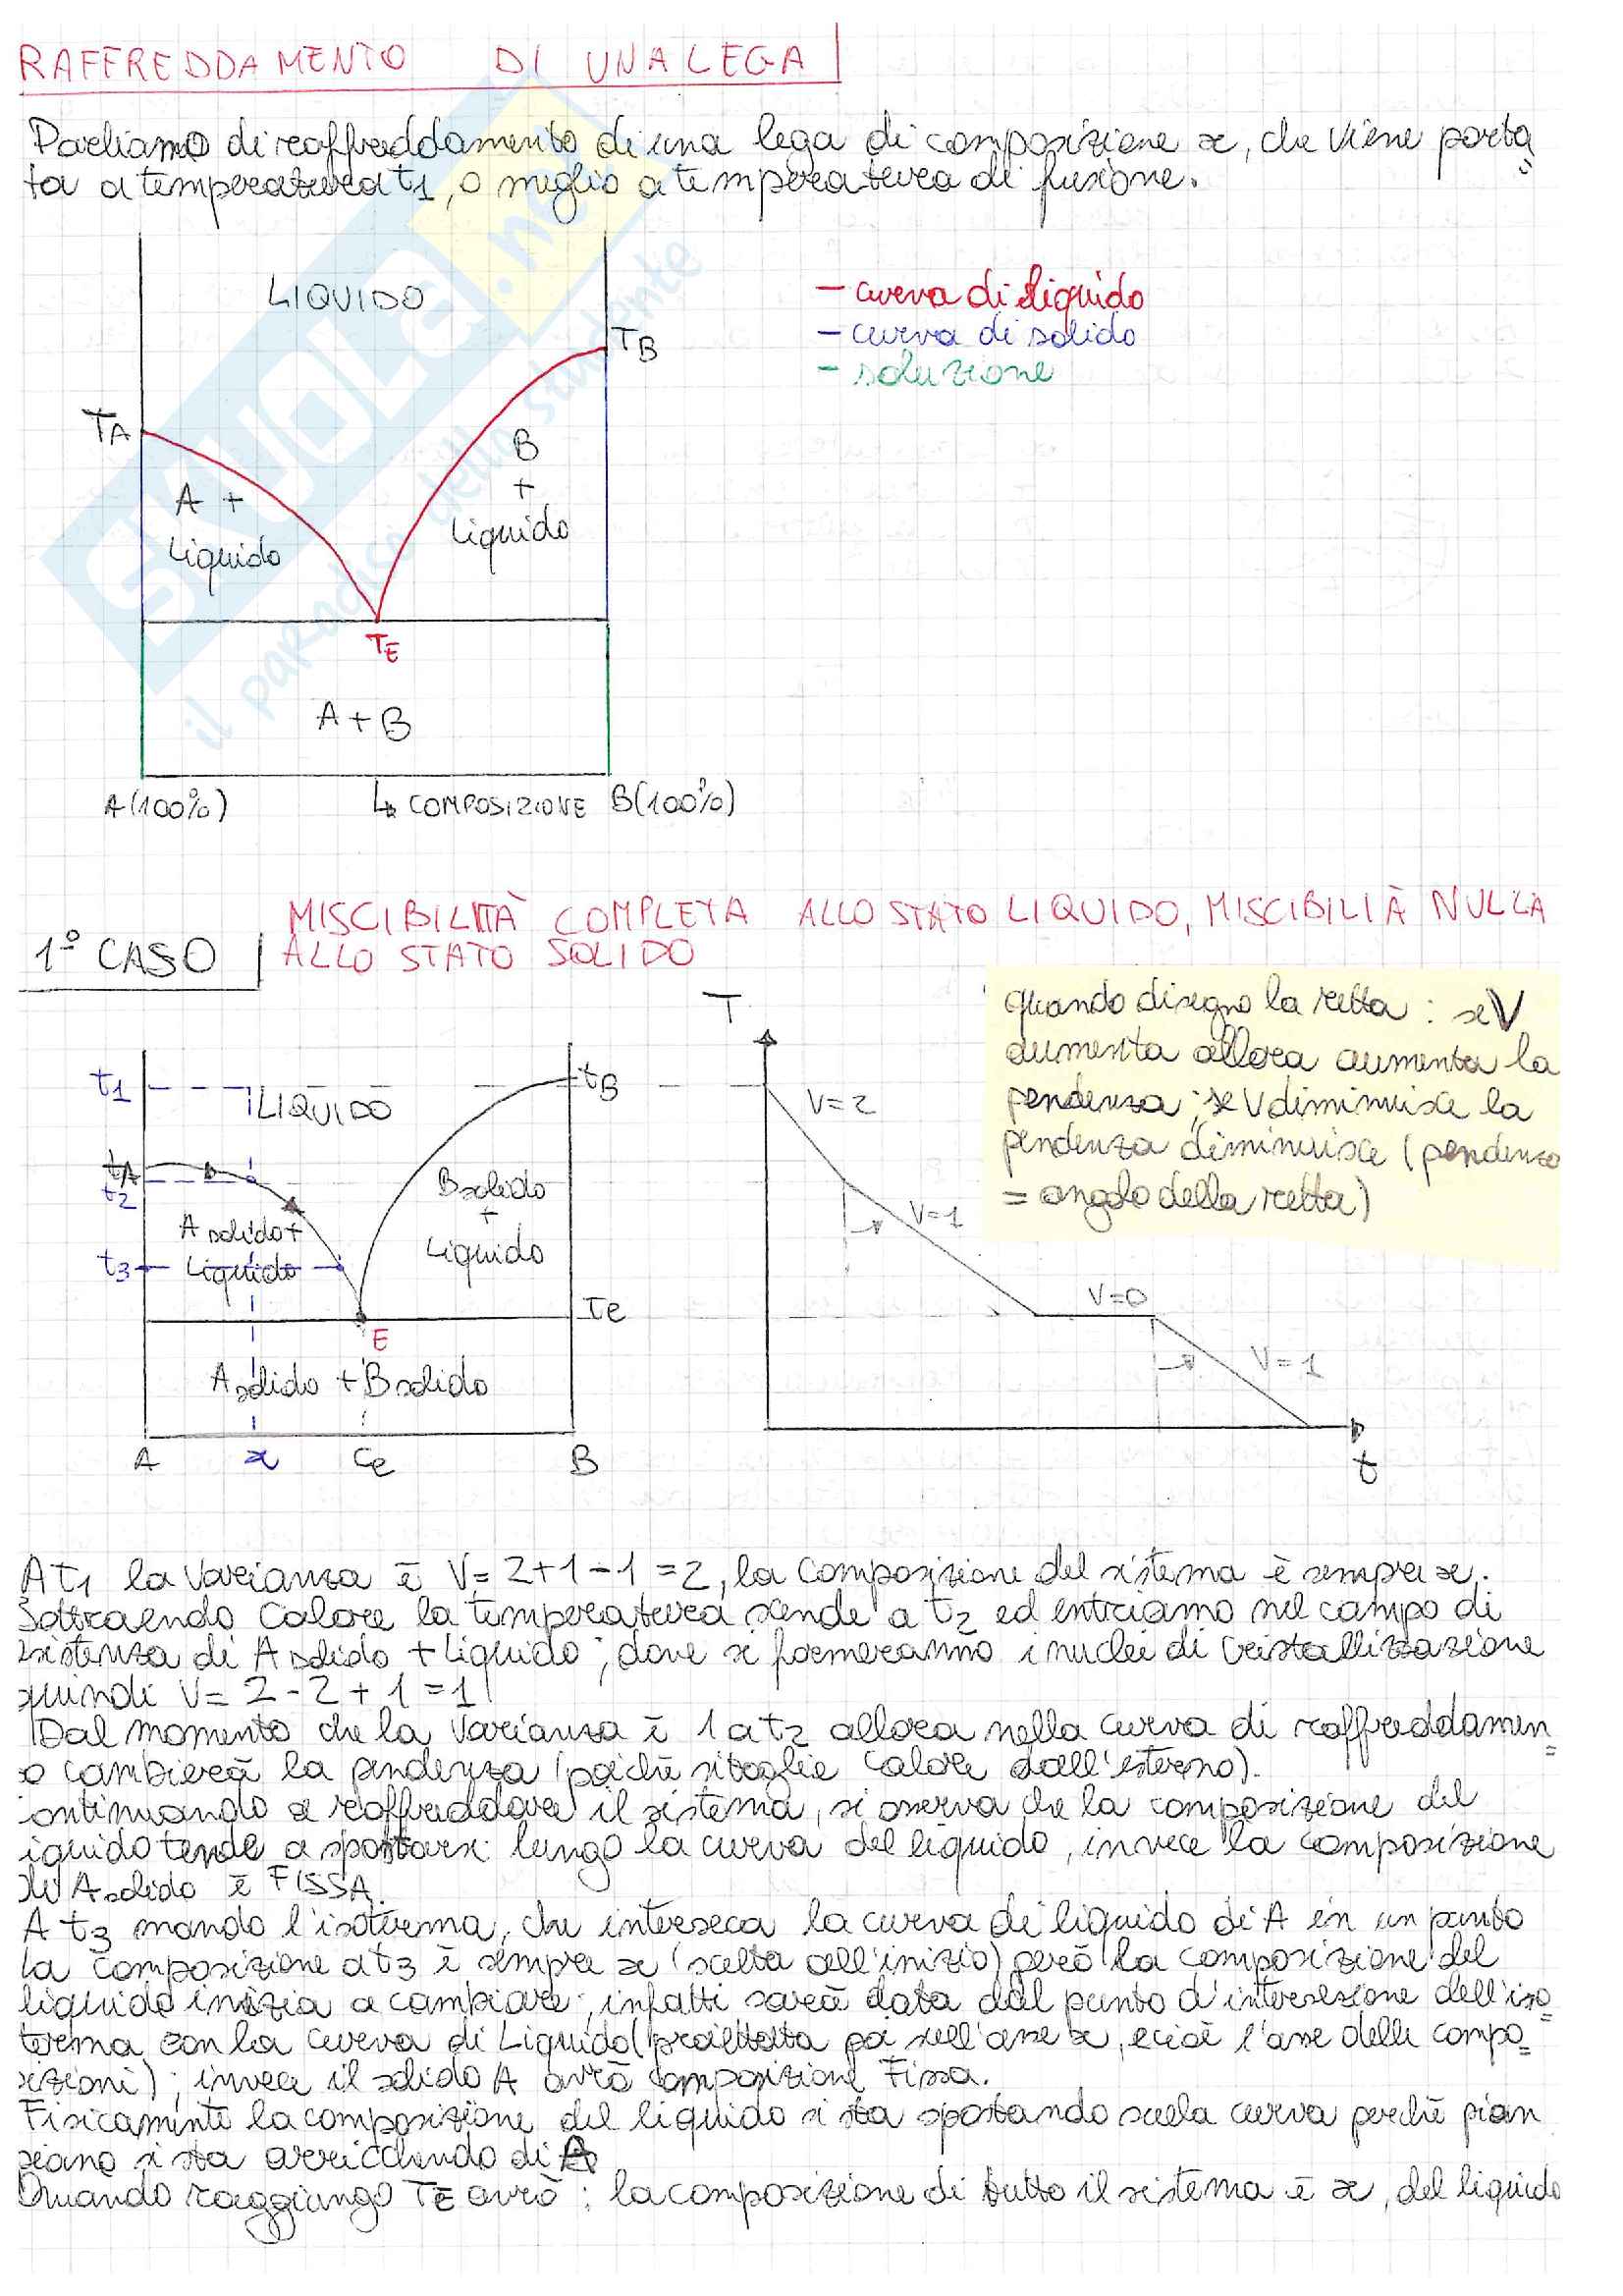 RAFFREDDAMENTO DI UNA LEGA
Parliamo di raffreddamento di una lega di composizione x, che viene porta=
ta a temperatura t1, o meglio a temperatura di fusione.
LIQUIDO
- curva di liquido
- curva di solido
- soluzione
TB
TA
B
+
Liquido
A +
Liquido
TE
A+B
A(100%)
↳ COMPOSIZIONE
B(100%)
SKUOLA.net
il paradiso dello studente
MISCIBILITÀ COMPLETA ALLO STATO LIQUIDO, MISCIBILIÀ NULLA
1° CASO
ALLO STATO SOLIDO
quando disegno la retta: se V
aumenta allora aumenta la
pendenza; se V diminuisce la
pendenza diminuisce (pendenza
= angolo della retta)
T
t1
LIQUIDO
tB
V=2
tA
t2
B solido
+
Liquido
A solido+
Liquido
t3
V=1
V=0
Te
E
V=1
A solido + B solido
A
x
Ce
B
t
A t1 la varianza è V= 2+1-1=2, la composizione del sistema è sempre x.
Sottraendo calore la temperatura scende a t2 ed entriamo nel campo di
esistenza di A solido + Liquido; dove si formeranno i nuclei di cristallizzazione
quindi V= 2-2+1=1
Dal momento che la varianza è 1 a t2 allora nella curva di raffreddamen=
o cambierà la pendenza (poichè si toglie calore dall'esterno).
ontinuando a raffreddare il sistema, si osserva che la composizione del
iquido tende a spostarsi lungo la curva del liquido, invece la composizione
di A solido è FISSA.
A t3 mando l'isoterma, che interseca la curva di liquido di A in un punto
La composizione a t3 è sempre x (scelta all'inizio) però la composizione del
liquido inizia a cambiare; infatti sarà data dal punto d'intersezione dell'iso=
terma con la curva di Liquido (proiettata poi sull'asse x, e cioè l'asse delle compo=
sizioni); invece il solido A avrà composizione Fissa.
Fisicamente la composizione del liquido si sta spostando sulla curva perchè pian
piano si sta arricchendo di
Quando raggiungo TE avrò: la composizione di tutto il sistema è x, del liquido